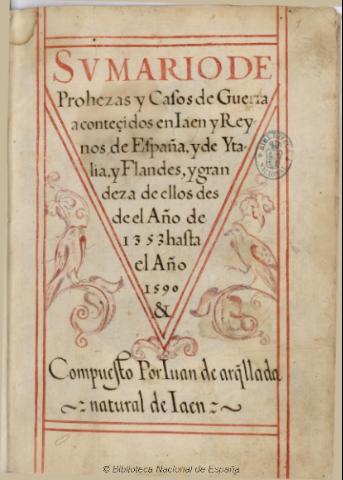 SVMARIO DE
Prohezas y Casos de Guerra
aconteçidos en Iaen y Rey-
nos de España, y de Yta-
lia, y Flandes, y gran
deza de ellos des
de el Año de
1353 hasta
el Año
1590
&
Compuesto Por Iuan de arq̃llada
natural de Iaen
© Biblioteca Nacional de España